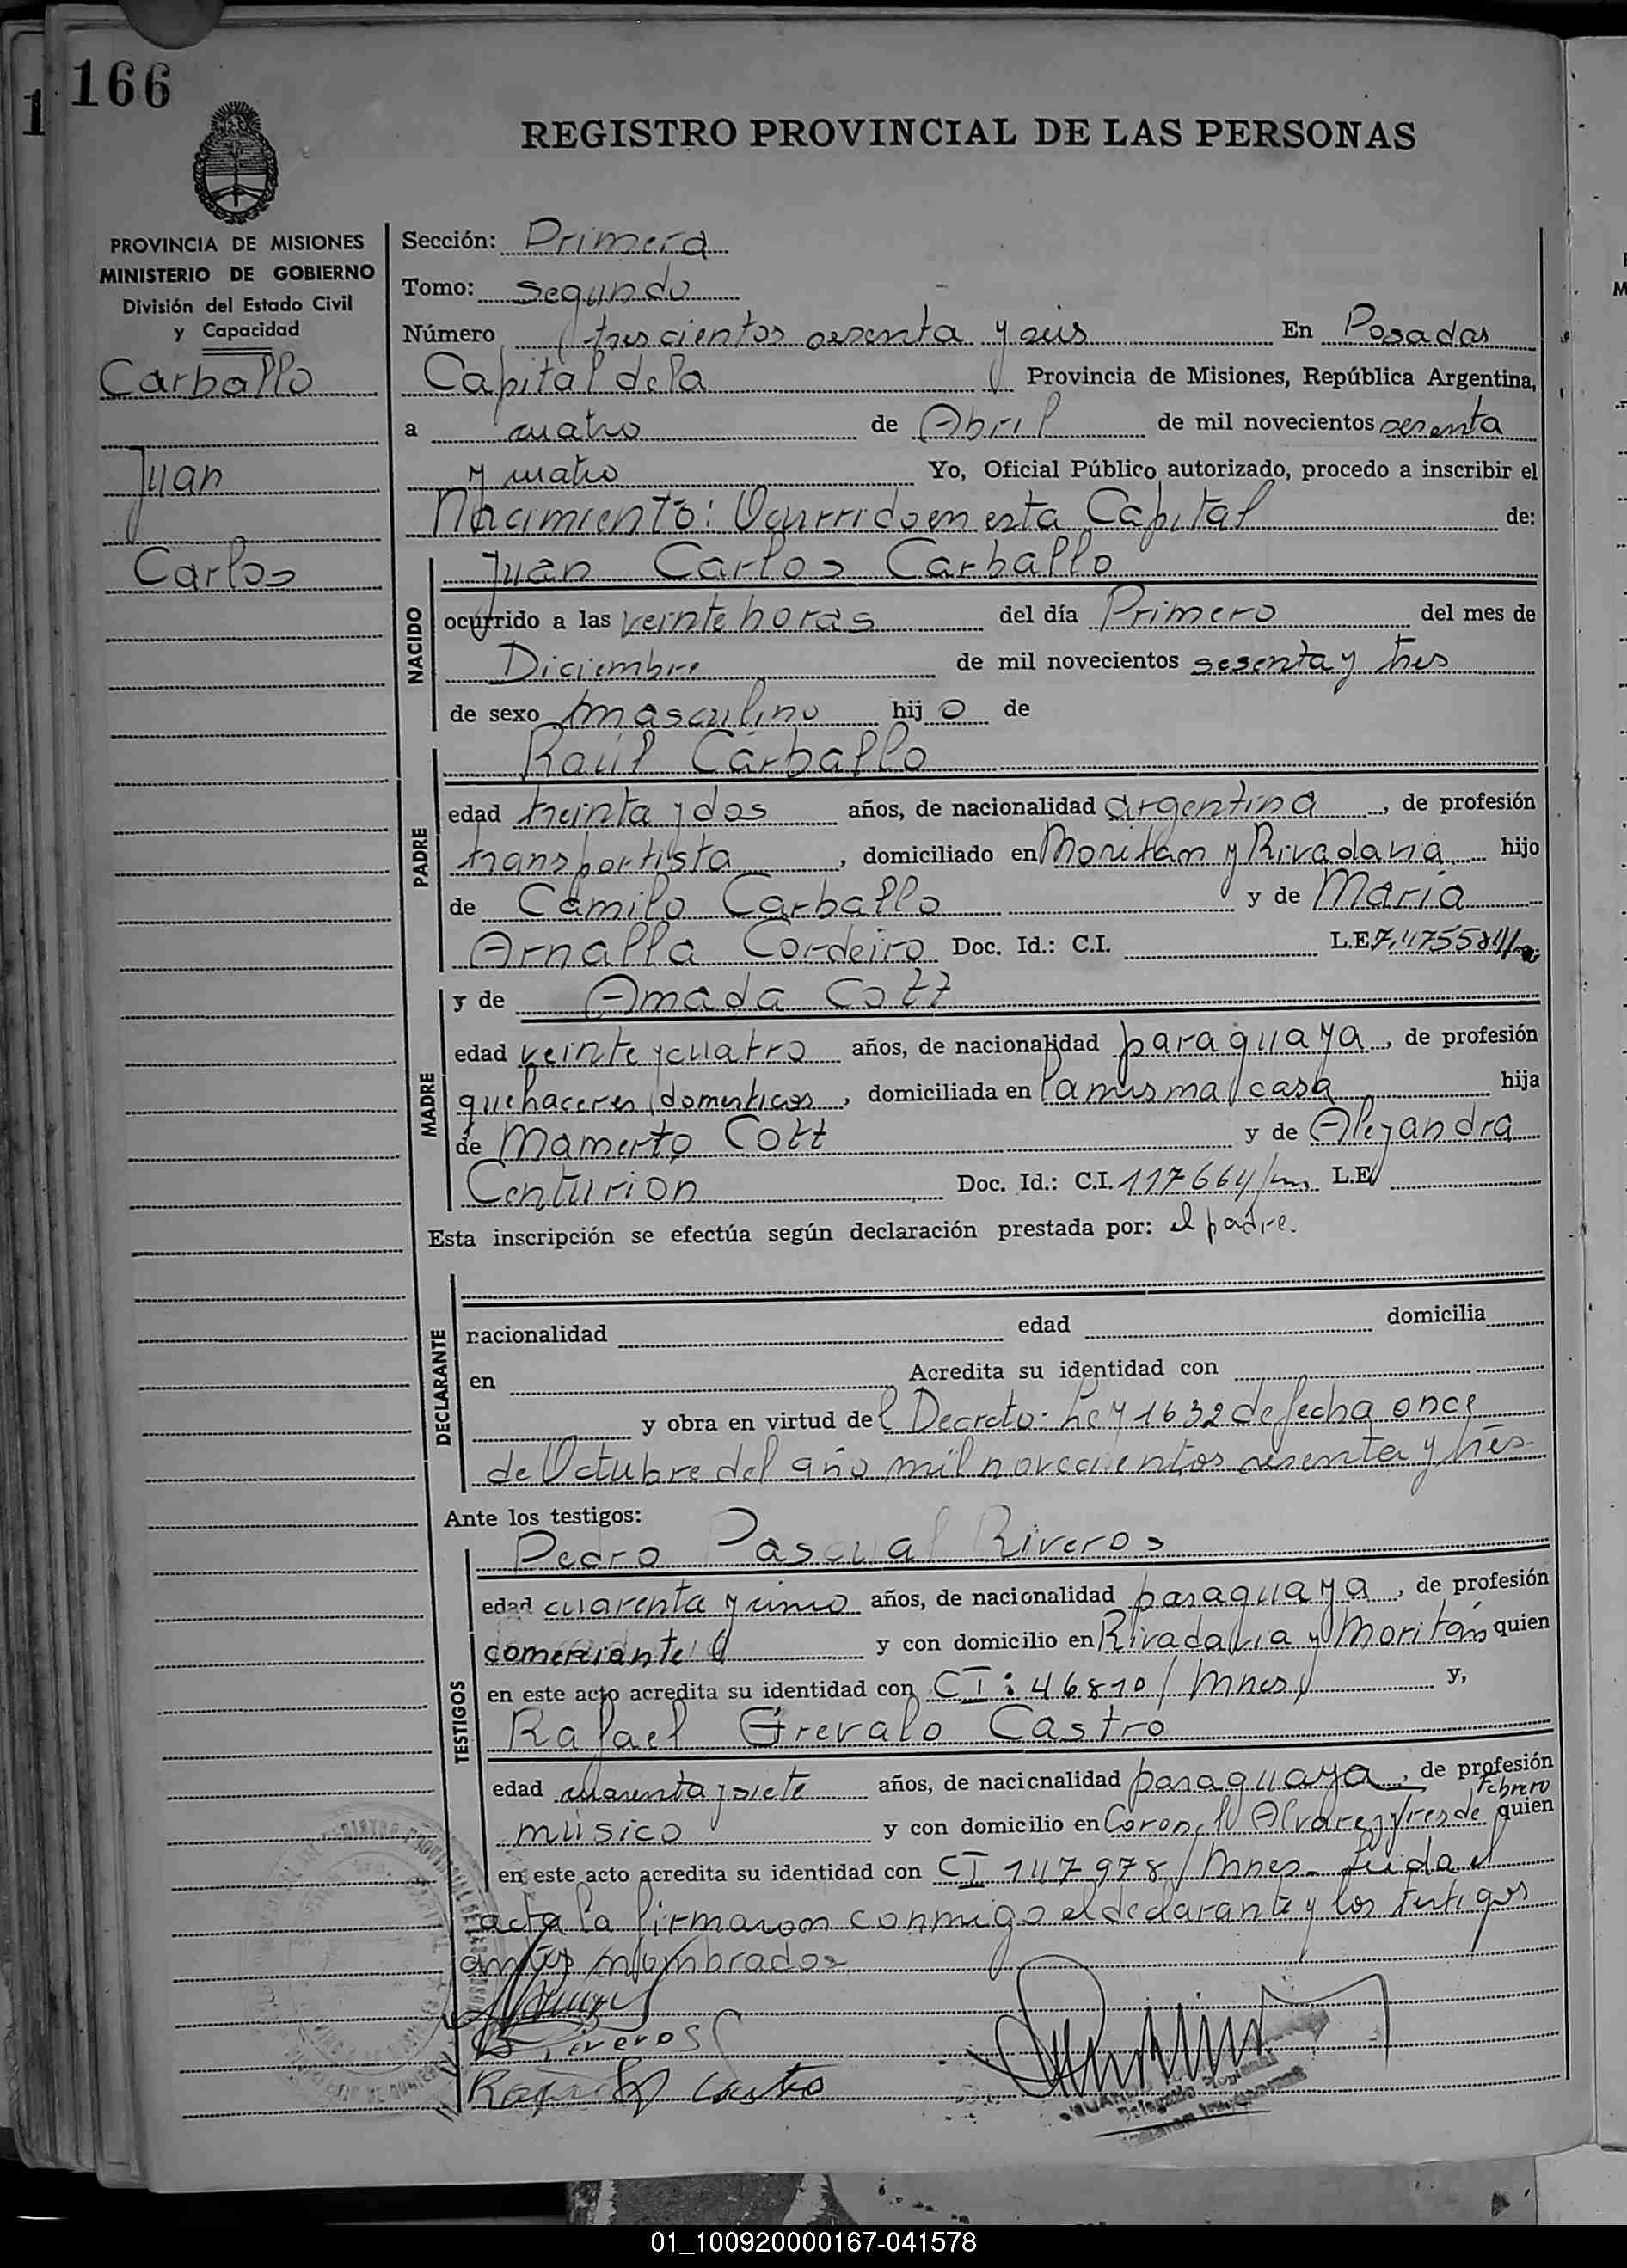 166
1
REGISTRO PROVINCIAL DE LAS PERSONAS
PROVINCIA DE MISIONES
MINISTERIO DE GOBIERNO
División del Estado Civil
y Capacidad
Carballo
Juan
Carlos
Sección: Primera
Tomo: Segundo
Número trescientos sesenta y seis En Posadas
Capital de la Provincia de Misiones, República Argentina,
a cuatro de Abril de mil novecientos sesenta
y cuatro Yo, Oficial Público autorizado, procedo a inscribir el
Nacimiento: Ocurrido en esta Capital de:
NACIDO
Juan Carlos Carballo
ocurrido a las veinte horas del día Primero del mes de
Diciembre de mil novecientos sesenta y tres
de sexo masculino hijo de
PADRE
Raúl Carballo
edad treinta y dos años, de nacionalidad argentina, de profesión
transportista, domiciliado en Moritan y Rivadavia hijo
de Camilo Carballo y de María
Arnalla Cordeiro Doc. Id.: C.I. L.E.
MADRE
y de Amada Cott
edad veinte y cuatro años, de nacionalidad paraguaya, de profesión
quehaceres domesticos, domiciliada en la misma casa hija
de Mamerto Cott y de Alejandra
Centurion Doc. Id.: C.I. 117664/ L.E
Esta inscripción se efectúa según declaración prestada por: el padre.
DECLARANTE
nacionalidad edad domicilia
en Acredita su identidad con
y obra en virtud del Decreto-Ley 1632 de fecha once
de Octubre del año mil novecientos sesenta y tres
Ante los testigos:
TESTIGOS
Pedro Pascual Riveros
edad cuarenta y años, de nacionalidad paraguaya, de profesión
comerciante y con domicilio en Rivadavia y Moritán quien
en este acto acredita su identidad con CI: 46810/Mnes y,
Rafael Grevalo Castro
edad cuarenta y siete años, de nacionalidad paraguaya, de profesión
músico y con domicilio en Coronel Alvarez y tres de Febrero quien
en este acto acredita su identidad con CI 147978/Mnes- leida el
acta la firmaron conmigo el declarante y los testigos
antes nombrados
Riveros
Rafael Castro
01_100920000167-041578